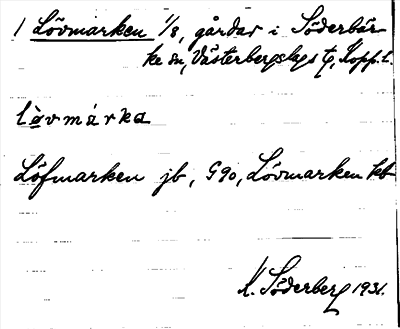 1 Lövmarken 1/8, gårdar i Söderbär-
ke sn, Västerbergslags tg, Kopp. l.
lövmárka
Löfmarken jb, G90, Lövmarken kb
K. Söderberg 1931.